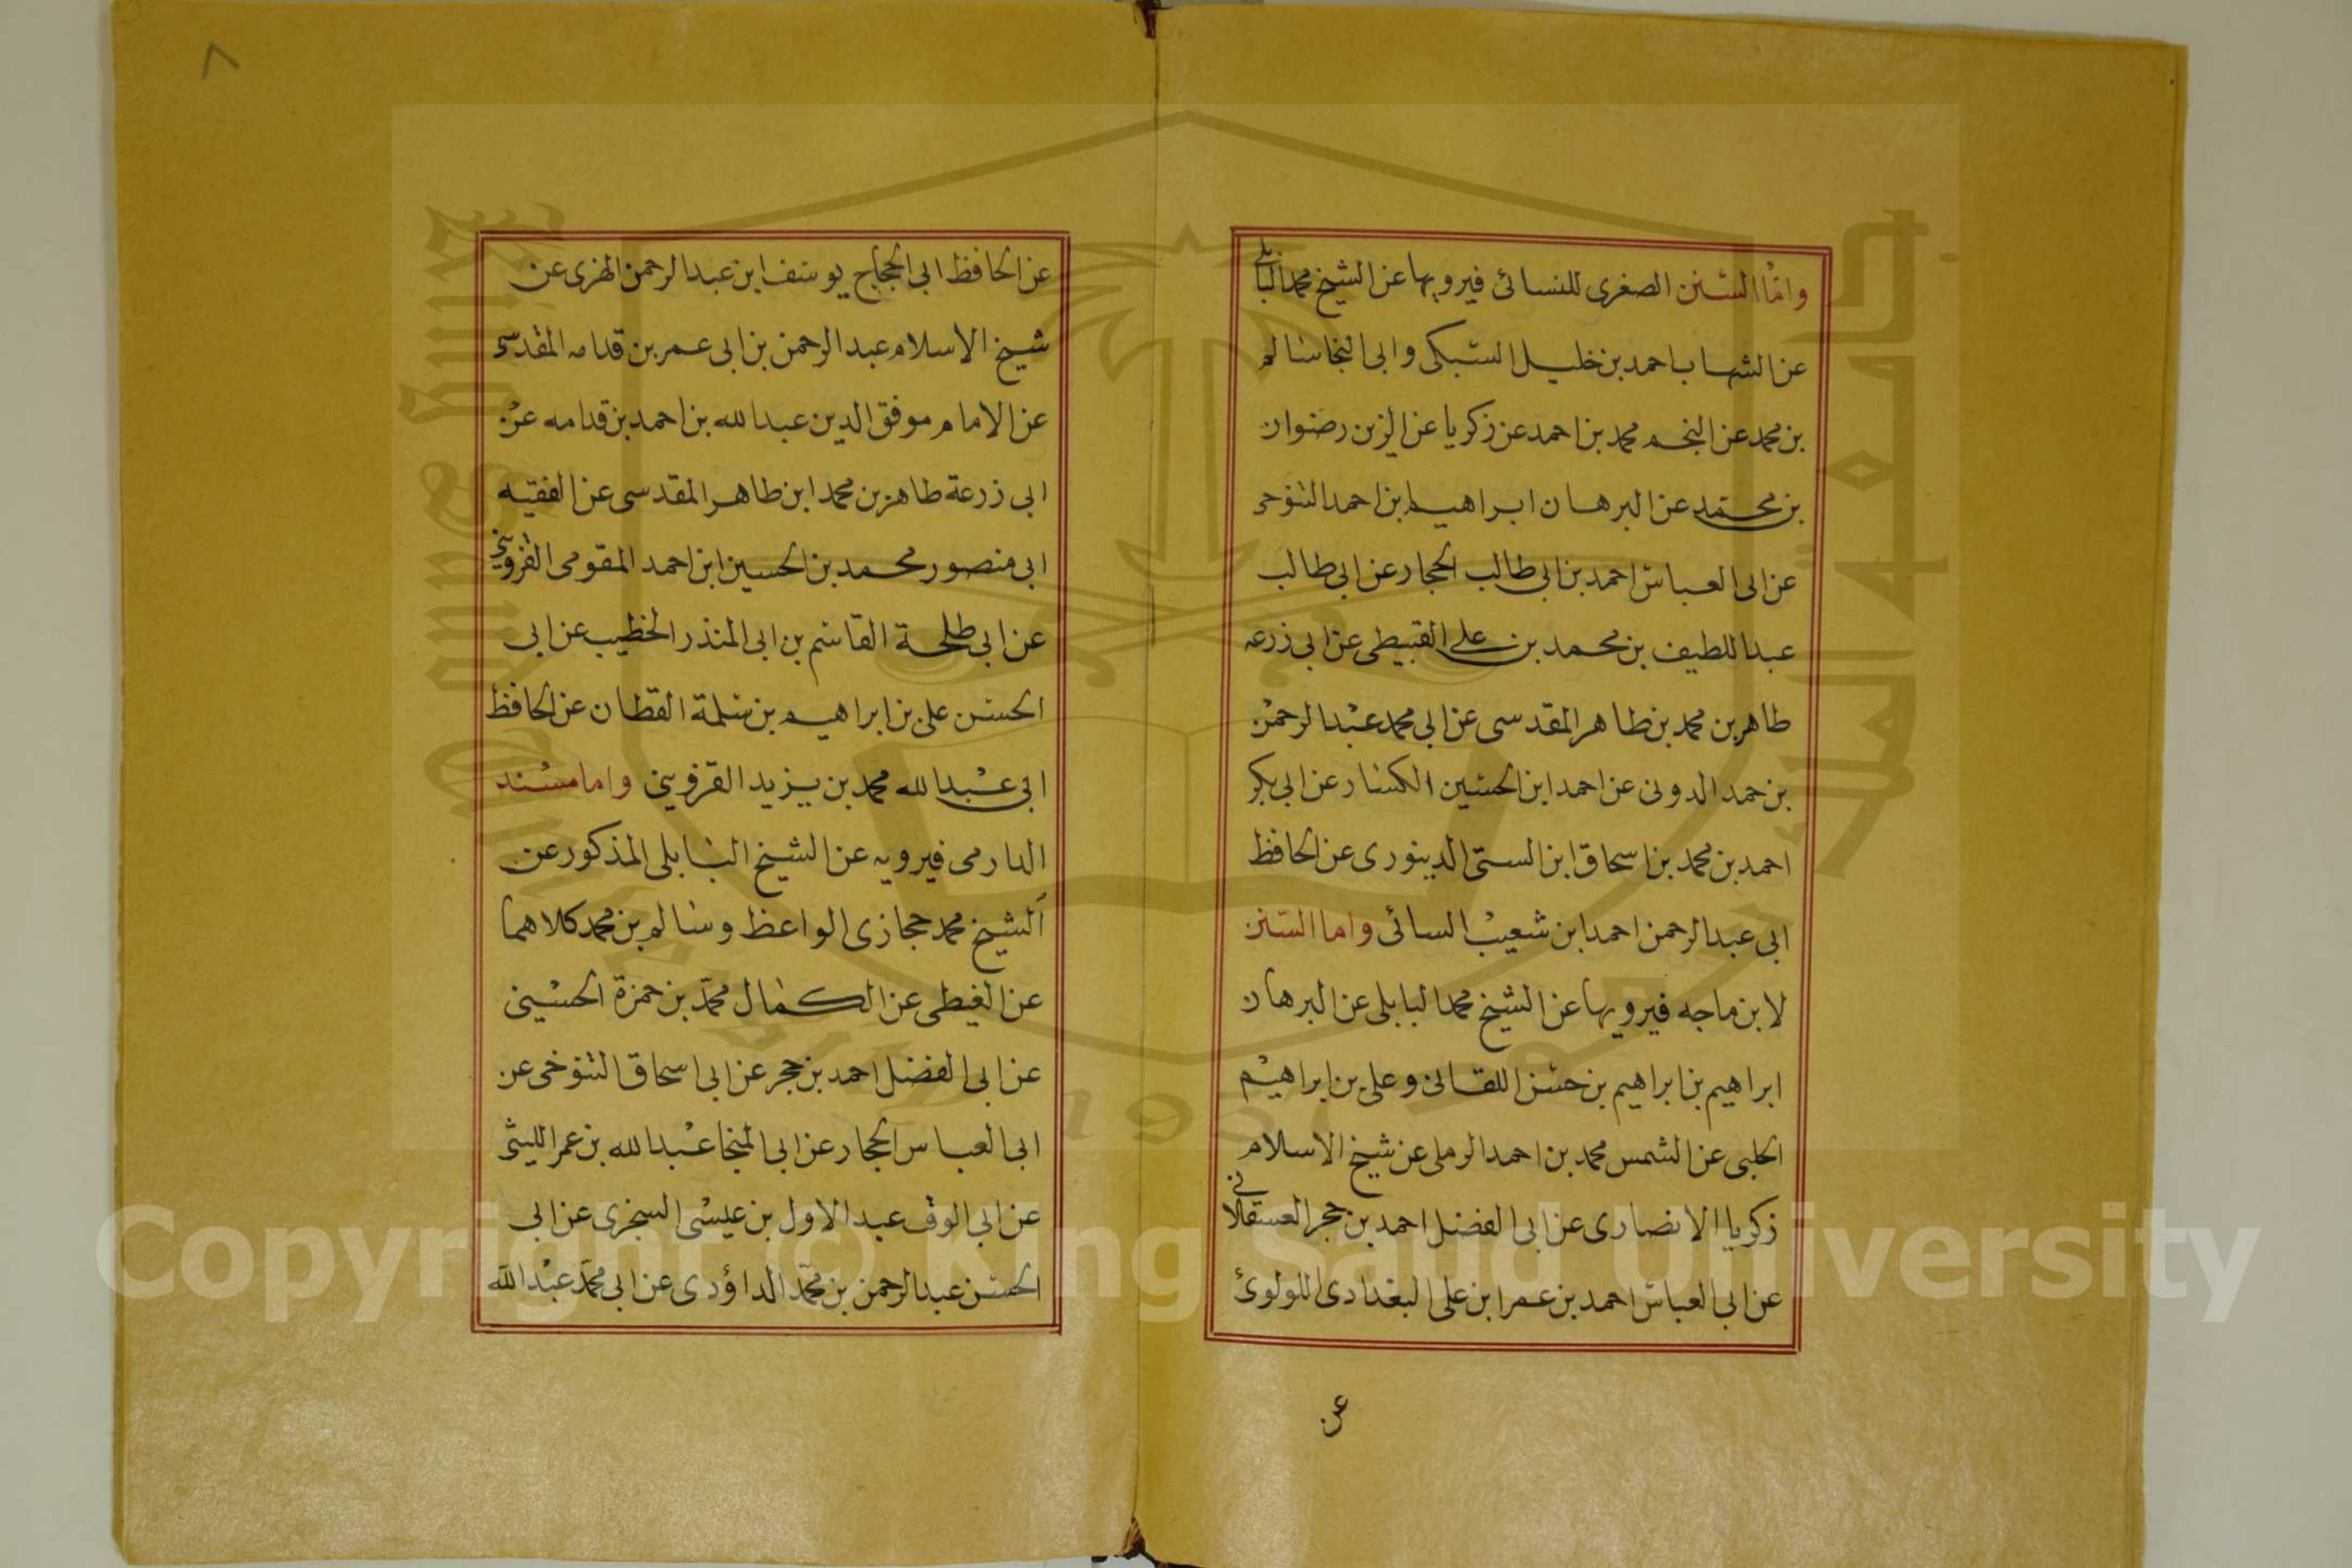 واما السنن الصغرى للنسائى فيرويها عن الشيخ محمد البابلى
عن الشهاب احمد بن خليل السبكى وابى النجا سالم
بن محمد عن النجم محمد بن احمد عن زكريا عن الزين رضوان
بن محمد عن البرهان ابراهيم بن احمد التنوخى
عن ابى العباس احمد بن ابى طالب الحجار عن ابى طالب
عبد اللطيف بن محمد بن على القبيطى عن ابى زرعه
طاهر بن محمد بن طاهر المقدسى عن ابى محمد عبد الرحمن
بن حمد الدونى عن احمد ابن الحسين الكسار عن ابى بكر
احمد بن محمد بن اسحاق ابن السنى الدينورى عن الحافظ
ابى عبد الرحمن احمد ابن شعيب السائى واما السنن
لابن ماجه فيرويها عن الشيخ محمد البابلى عن البرهان
ابراهيم بن ابراهيم بن حسن اللقانى وعلى بن ابراهيم
الحلبى عن الشمس محمد بن احمد الرملى عن شيخ الاسلام
زكريا الانصارى عن ابى الفضل احمد بن حجر العسقلانى
عن ابى العباس احمد بن عمر ابن على البغدادى اللولوئ
عن
٨
عن الحافظ ابى الحجاج يوسف ابن عبد الرحمن المزى عن
شيخ الاسلام عبد الرحمن بن ابى عمر بن قدامه المقدسى
عن الامام موفق الدين عبد الله بن احمد بن قدامه عن
ابى زرعة طاهر بن محمد ابن طاهر المقدسى عن الفقيه
ابى منصور محمد بن الحسين ابن احمد المقومى القزوينى
عن ابى طلحة القاسم بن ابى المنذر الخطيب عن ابى
الحسن على بن ابراهيم بن سلمة القطان عن الحافظ
ابى عبد الله محمد بن يزيد القزوينى واما مسند
الدارمى فيرويه عن الشيخ البابلى المذكور عن
الشيخ محمد حجازى الواعظ وسالم بن محمد كلاهما
عن الغيطى عن الكمال محمد بن حمزة الحسينى
عن ابى الفضل احمد بن حجر عن ابى اسحاق التنوخى عن
ابى العباس الحجار عن ابى المنجا عبد الله بن عمر الليثى
عن ابى الوقت عبد الاول بن عيسى السجزى عن ابى
الحسن عبد الرحمن بن محمد الداؤدى عن ابى محمد عبد الله
Copyright © King Saud University